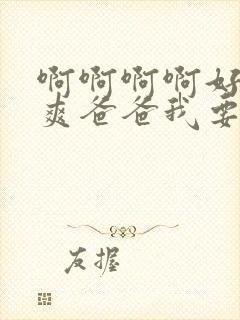 啊啊啊啊好
爽爸爸我要
友握